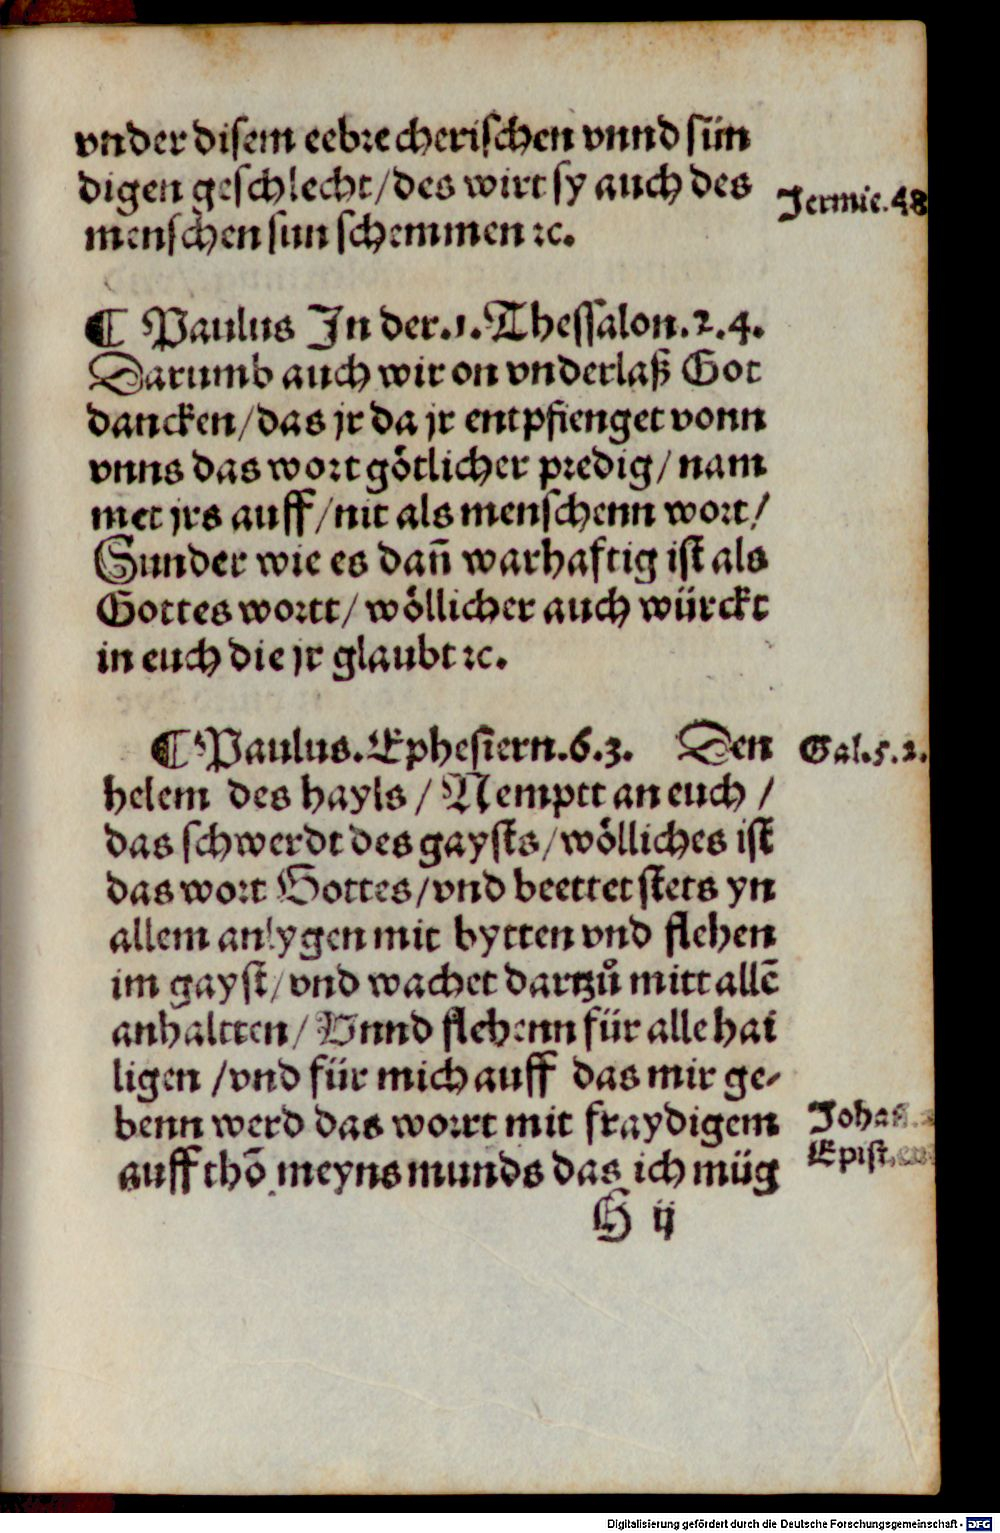 vnder disem eebrecherischen vnnd sün
digen geschlecht/des wirt sy auch des
Jermie.48
menschen sun schemmen ꝛc.
¶ Paulus In der.1.Thessalon.2.4.
Darumb auch wir on vnderlaß Got
dancken/das jr da jr entpfienget vonn
vnns das wort götlicher predig/nam
met jrs auff/nit als menschenn wort/
Sunder wie es dañ warhaftig ist als
Gottes wortt/wöllicher auch würckt
in euch die jr glaubt ꝛc.
¶ Paulus.Ephesiern.6.3. Den
Gal.5.2.
helem des hayls / Nemptt an euch /
das schwerdt des gaysts/wölliches ist
das wort Gottes/vnd beettet stets yn
allem anlygen mit bytten vnd flehen
im gayst/vnd wachet dartzů mitt allē
anhaltten/ Vnnd flehenn für alle hai
ligen /vnd für mich auff das mir ge-
benn werd das worrt mit fraydigem
Johan.
auff thō meyns munds das ich müg
Epist.
G ij
Digitalisierung gefördert durch die Deutsche Forschungsgemeinschaft - DFG